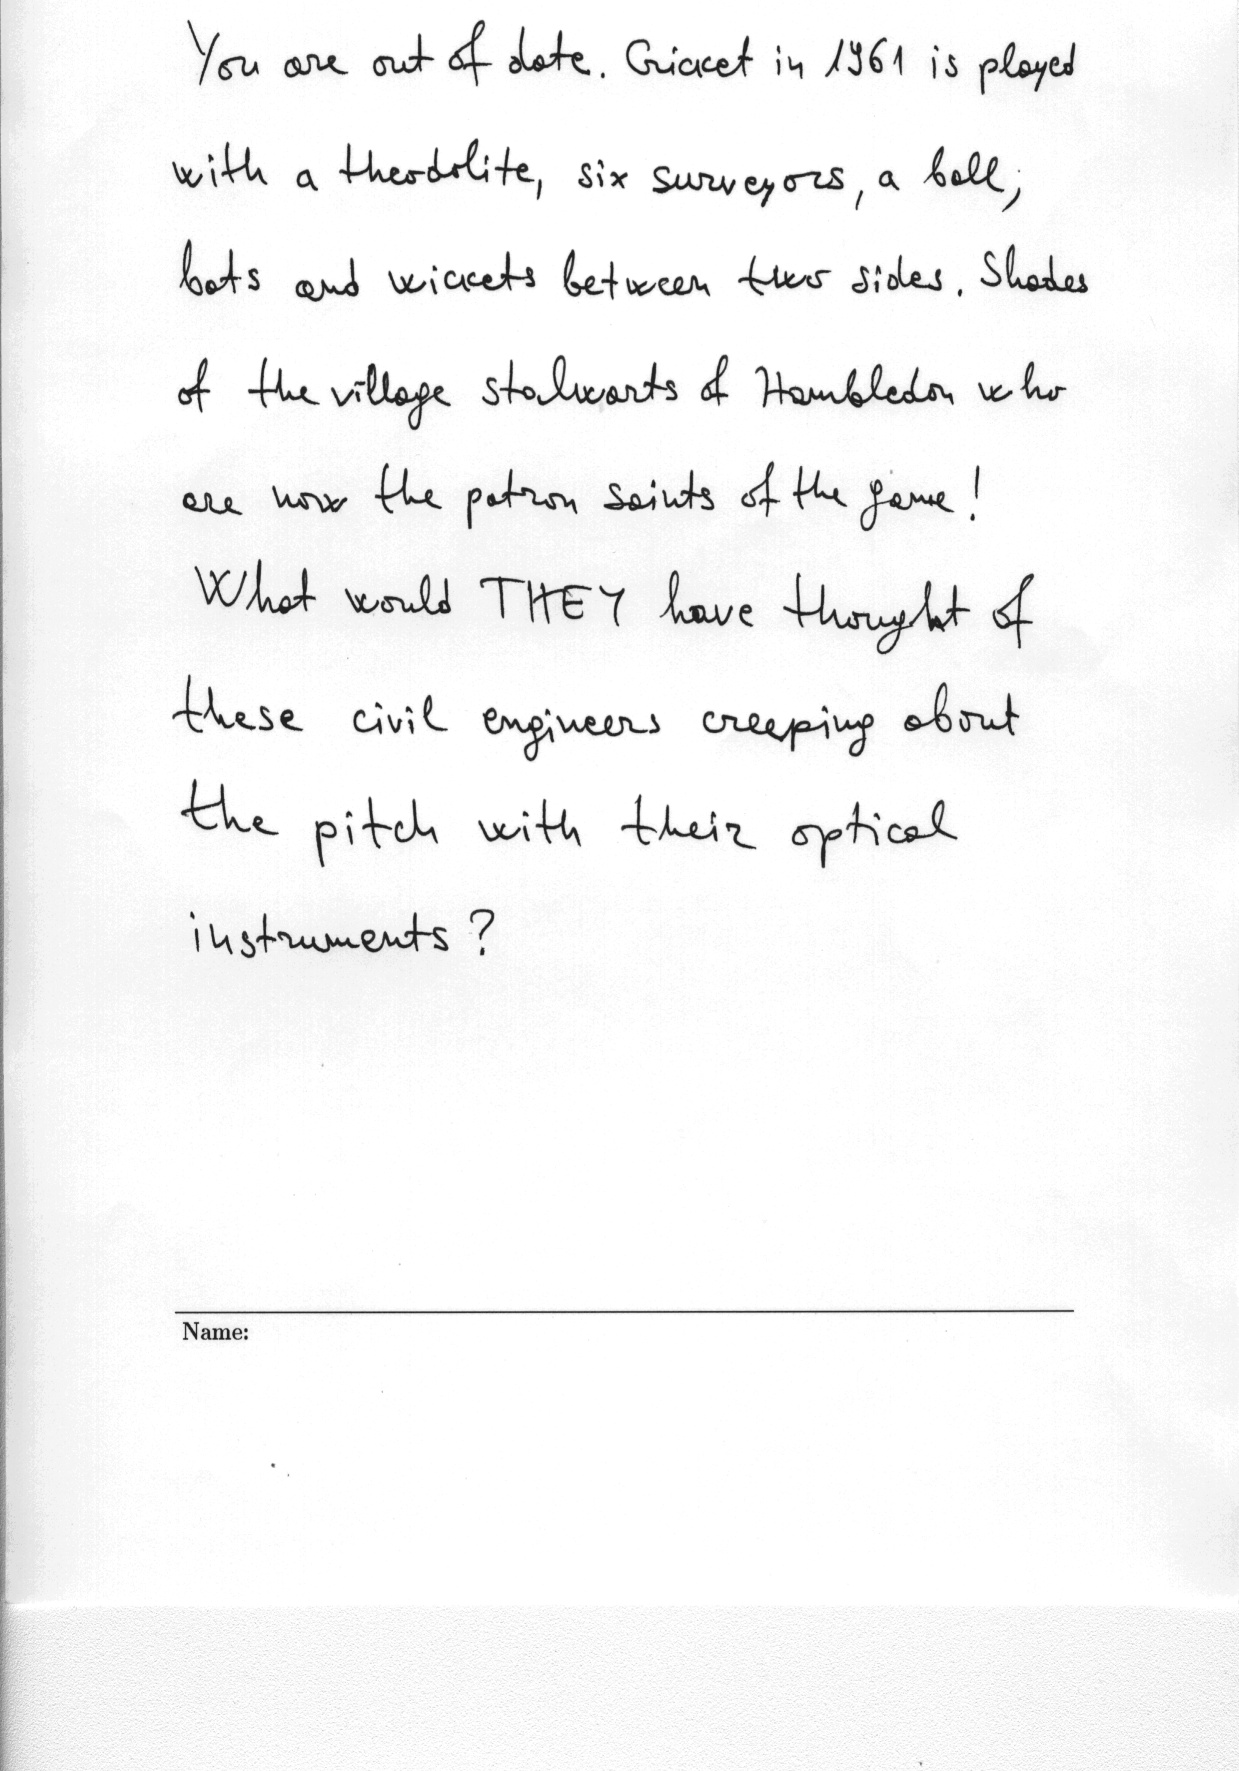 You are out of date. Cricket in 1961 is played
with a theodolite, six surveyors, a ball,
bats and wickets between two sides. Shades
of the village stalwarts of Hambledon who
are now the patron saints of the game!
What would THEY have thought of
these civil engineers creeping about
the pitch with their optical
instruments?
Name: